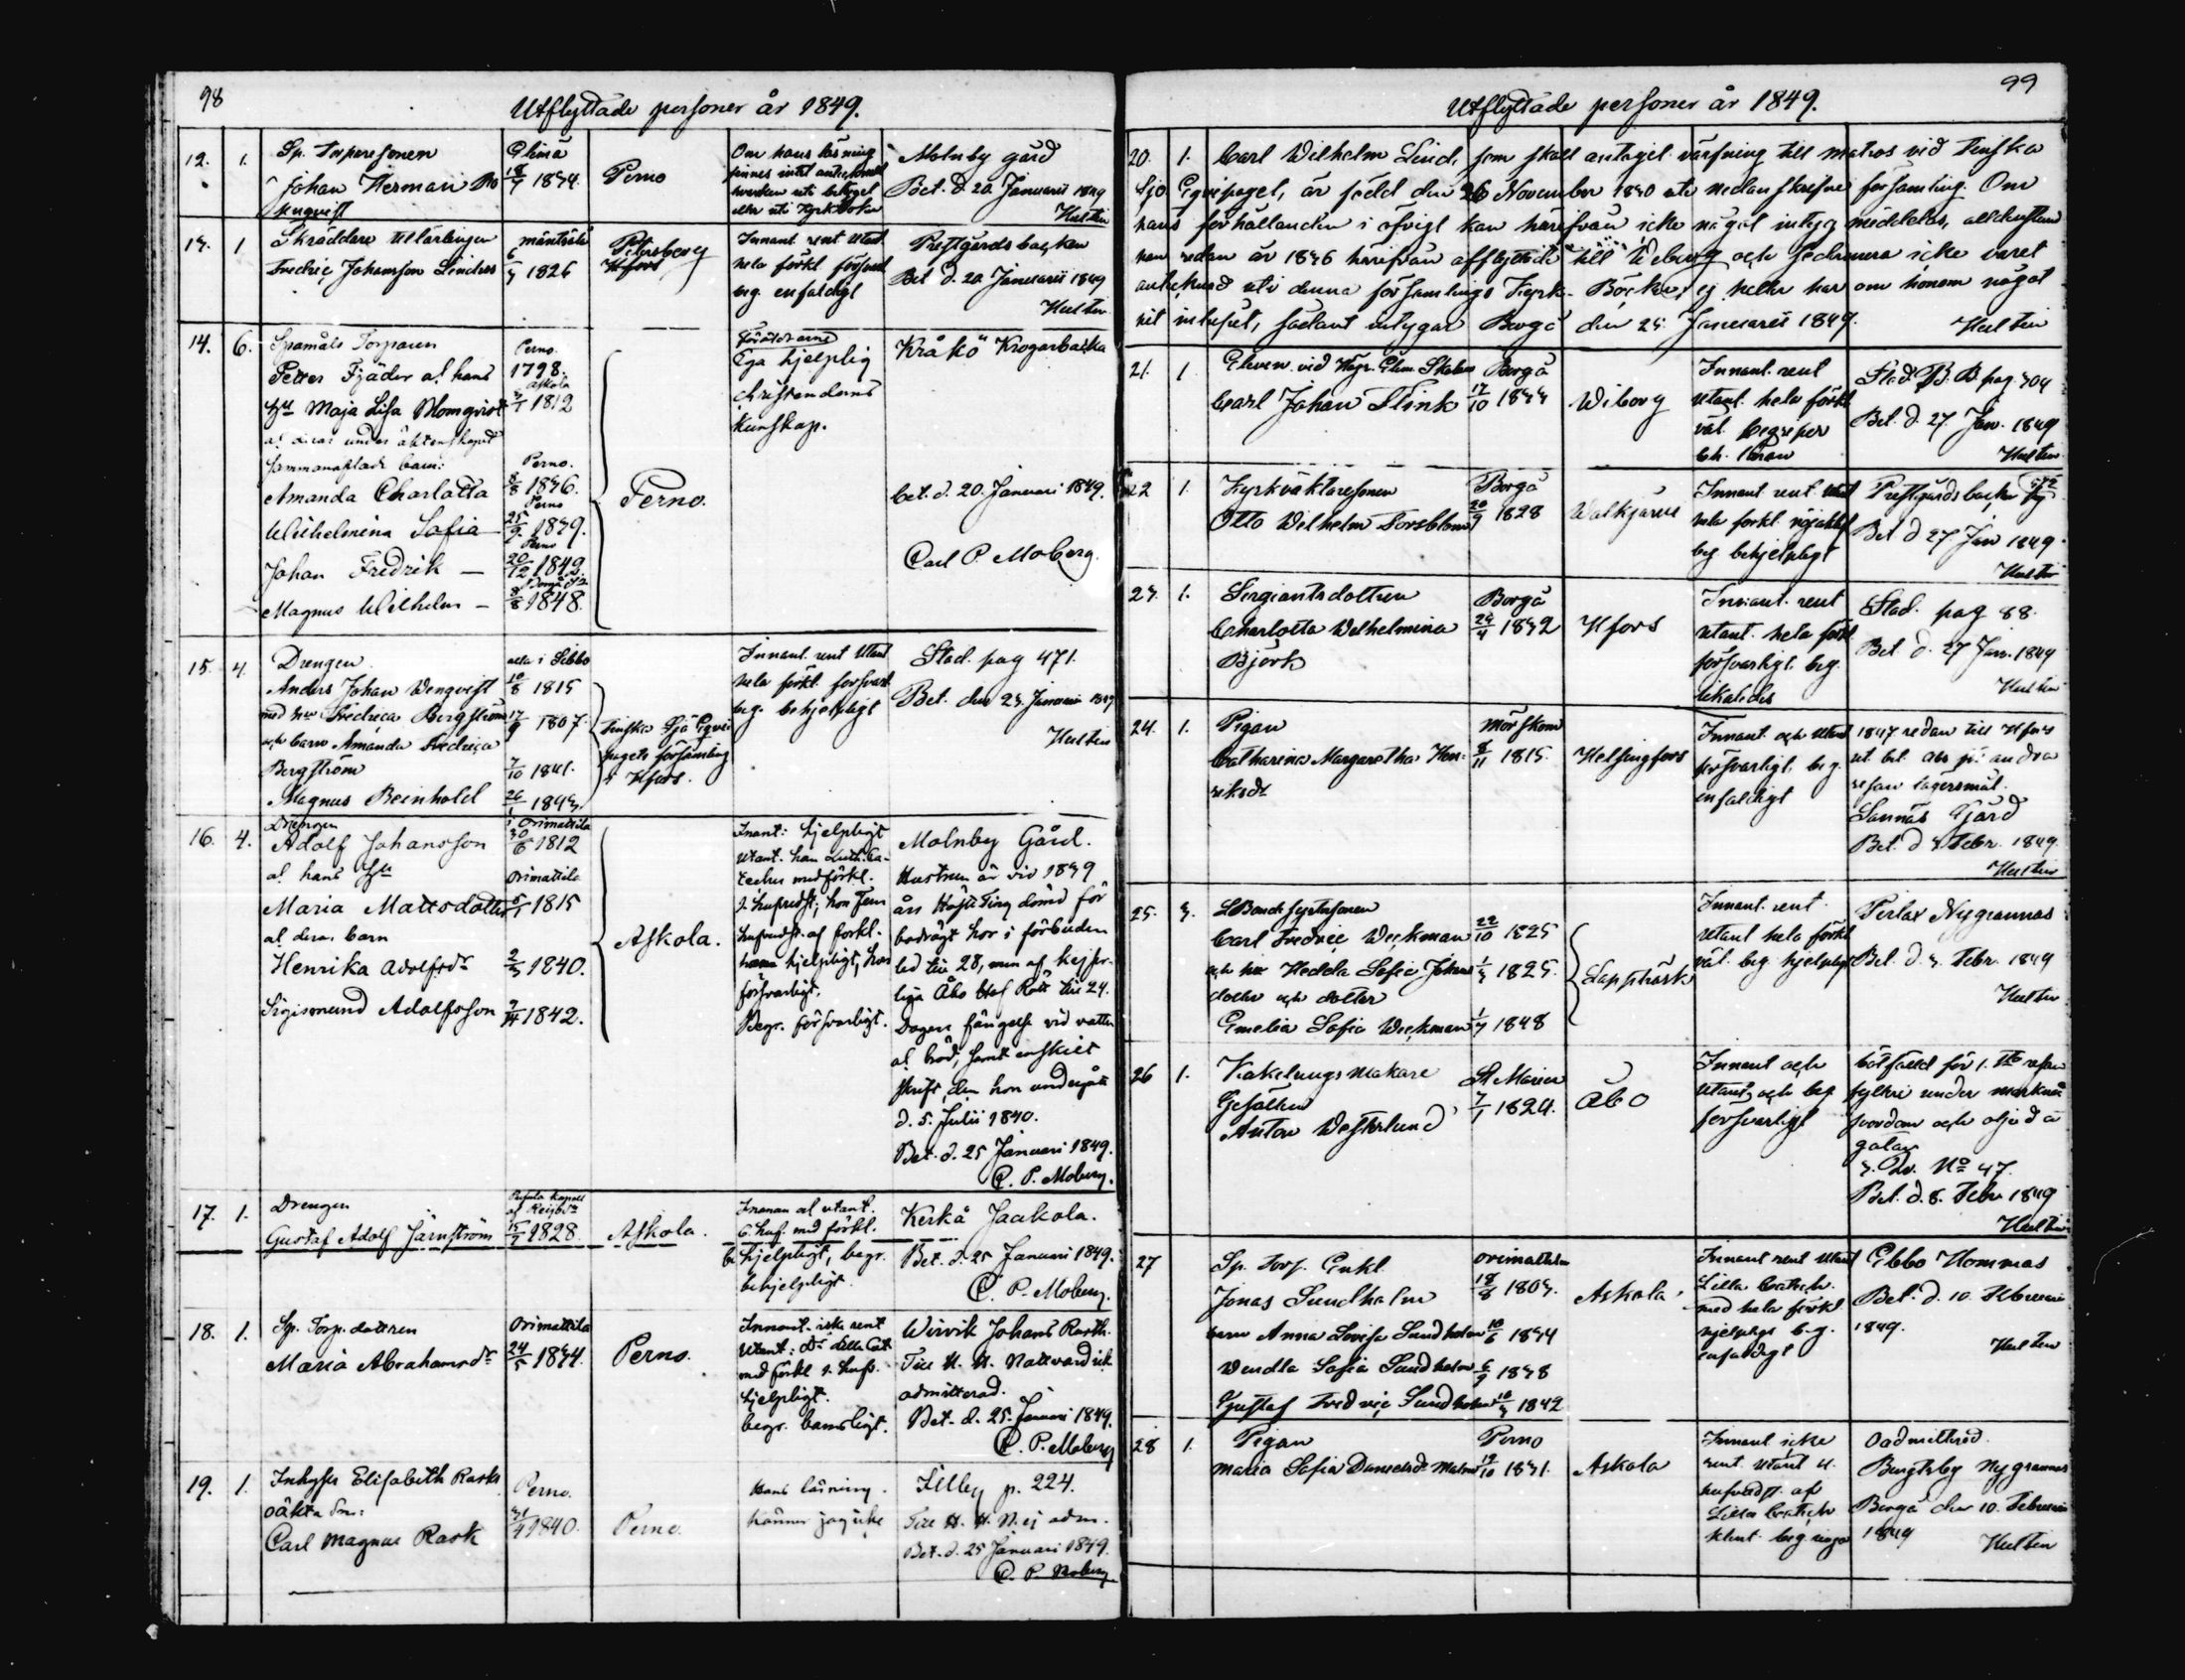 98
Utflyttade personer år 1849.
12. 1. Sp. Torparesonen
Johan Herman
Elimä
18/7 1834.
Perno
Om hans läsning
finnes intet antecknadt
hvarken uti betyget
eller uti Kyrkboken
Molnby gård
Bet. d. 20 Januarii 1849
Hultin
13. 1 Skräddare
Fredric Johansson Lindros
Mäntsälä
1826
Petersborg
Hfors
Innant. rent utant.
hela förkl. försvarl.
beg. enfaldigt
Prestgårds backen
Bet d. 20 Januarii 1849
Hultin
14. 6. Spanmåls Torparen
Petter Fjäder a! hans
hu Maja Lisa Blomqvist
a! deras under äktenskapet
sammanaflade barn:
Amanda Charlotta
Wilhelmina Sofia
Johan Fredrik —
Magnus Wilhelm —
Perno.
1798.
Askola
1812
Perno.
8/8 1836.
Perno
25/9 1839.
Perno
20/12 1842.
Borgå
8/8 1848.
Perno.
Föräldrarne
Ega hjelplig
christendoms
kunskap.
Kråkö Krogarbacka
bet. d. 20. Januari 1849.
Carl P. Moberg.
15. 4. Drengen
Anders Johan Wenqvist
med hu Fredrica Bergström
och barn Amanda Fredrica
Bergström
Magnus Reinhold
alla i Sibbo
10/8 1815
17/9 1807.
7/10 1841.
26/1 1843
Finska Sjö Equi
pagets församling
i Hfors.
Innant. rent Utant
hela förkl. försvarl
beg. behjelpligt
Stad. pag 471.
Bet. den 23. Januari 1849
Hultin
16. 4. Drengen
Adolf Johansson
a! hans Hu
Maria Mattsdotter
a! deras barn
Henrika Adolfsdr
Sigismund Adolfsson
Orimattila
30/6 1812
Orimattila
1815
1840.
1842.
Askola.
Inant: hjelpligt
Utant. han Luth. Ca-
teches med förkl.
2. hufvudst; hon Fem
hufvudst. af förkl.
hjelpligt, hon
försvarligt.
Begr. försvarligt.
Molnby Gård.
Hustrun är vid 1839
års Höst Ting dömd för
bedrägt hor i förbuden
led till 28, men af kejser-
liga Åbo Hof Rätt till 24.
Dagars fängelse vid vatten
a! bröd, samt enskilt
skrift, den hon undergått
d. 5. Julii 1840.
Bet. d. 25 Januari 1849.
C. P. Moberg.
17. 1. Drengen
Gustaf Adolf Järnström
1828.
Askola.
Innan a! utant.
6. huf. med förkl.
hjelpligt, begr.
behjelpligt.
Kerkå Jaakola.
Bet. d. 25 Januari 1849.
C. P. Moberg.
18. 1. Sp. Torp. dottren
Maria Abrahamsdr
Orimattila
24/5 1834.
Perno.
Innant. icke rent
Utant: do Lilla Cat
med förkl 2. huf.
hjelpligt.
begr. barnsligt.
Wirvik Johans Rasth.
Till H. H. Nattvard ick
admitterad.
Bet. d. 25. Januari 1849.
C. P. Moberg
19. 1. Inhyses Elisabeth Rasks
oäkta son:
Carl Magnus Rask
Perno.
1840.
Perno.
Hans läsning.
känner jag icke
Illby p. 224.
Till H. H. N. ej adm.
Bet. d. 25 Januari 1849.
C. P. Moberg
99
Utflyttade personer år 1849.
20. 1. Carl Wilhelm Lind, som skall antagit värfning till matros vid Finska
Sjö Eqvipaget, är född den 26 November 1830 uti nedanskrefne församling. Om
hans förhållanden i öfrigt kan härifrån icke något intyg meddelas, alldenstund
han redan år 1836 härifrån afflyttade till Wiborg och sedermera icke varit
antecknad uti denna församlings Kyrk-Böcker, ej heller har om honom något
hit inlupit, sådant intygar Borgå den 25 Januarii 1849. Hultin
21. 1 Eleven vid
Carl Johan Flink
Borgå
17/10 1833
Wiborg
Innant. rent
utant. hela förkl.
väl. begriper
Stad. B. B pag. 304
Bet. d. 27 Jan. 1849
Hultin
22 1. Kyrkväktaresonen
Otto Wilhelm Forsblom
Borgå
20/9 1828
Walkjärvi
Innant rent Utant
hela förkl. nöjaktigt
beg behjelpligt
Prestgårds backen
Bet d 27 Jan 1849
Hultin
23. 1. Sergiantsdottren
Charlotta Wilhelmina
Björk
Borgå
29/4 1832
Hfors
Innant. rent
utant. hela förkl.
försvarligt. beg.
likaledes
Stad. pag 88.
Bet d. 27 Jan. 1849
Hultin
24. 1. Pigan
Catharina Margaretha Hen-
riksdr
Mörskom
8/11 1815.
Helsingfors
Innant. och utant
försvarligt beg.
enfaldigt
1847 redan till Hfors
ut bet. abs på andra
resan lägersmål.
Sannäs Gård
Bet. d 3 Febr. 1849.
Hultin
25. 3.
Carl Fredric Weckman
och hu Hedda Sofia Johans
dotter och dotter
Emelia Sofia Weckman
22/10 1825
1825.
1848
Lappträsk
Innant. rent
utant hela förkl.
väl. beg. hjelpligt
Pirlax Nygrannas
Bet. d. 3. Febr. 1849
Hultin
26 1. Kakelungsmakare
Gesällen
Anton Westerlund
St Marien
7/1 1824.
Åbo
Innant och
utant och beg
försvarligt
bötfälld för 1. sta resan
fylleri under marknad
svordom och oljud å
gatan
No 47.
Bet. d. 8. Febr 1849
Hultin
27 Sp. Torp. Enkl.
Jonas Sundholm
barn Anna Lovisa Sundholm
Wendla Sofia Sundholm
Gustaf Fredric Sundholm
Orimattila
18/8 1803.
10/6 1834
1838
1842
Askola
Innant rent Utant
Lilla Catech.
med hela förkl.
hjelpligt beg.
enfaldigt
Ebbo Hommas
Bet. d. 10. Februari
1849.
Hultin
28 1. Pigan
Maria Sofia Danielsdr Malm
Perno
1831.
Askola
Innant icke
rent. Utant
hufvudst. af
Lilla Catech
klent. beg. ringa
Oadmitterad.
Nygrannas
Borgå den 10. Februari
1849
Hultin